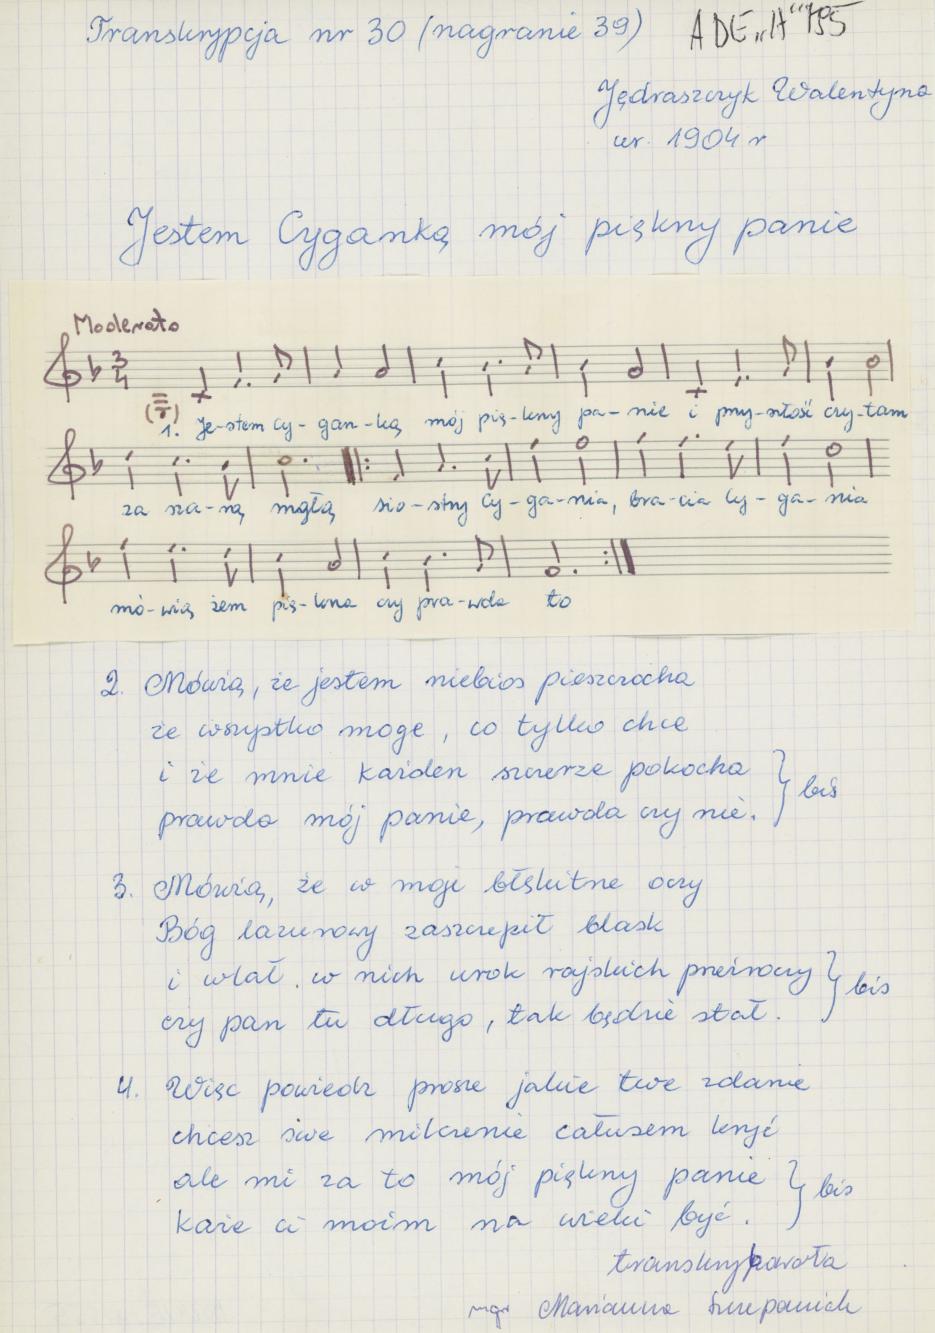 Transkrypcja nr 30 (nagranie 39) ADE „H" 195
Jędraszczyk Walentyna
ur. 1904 r
Jestem Cyganką mój piękny panie
Moderato
3
4
1. Je-stem cy-gan-ką mój pię-kny pa-nie i przy-szłość czy-tam
za sza-rą mgłą sio-stry Cy-ga-nia, bra-cia Cy-ga-nia
mó-wią żem pię-kna czy pra-wda to
2. Mówią, że jestem niebios pieszczocha
że wszystko moge, co tylko chce
i że mnie każden szczerze pokocha } bis
prawda mój panie, prawda czy nie.
3. Mówią, że w moje błękitne oczy
Bóg lazurowy zaszczepił blask
i wlał w nich urok rajskich przeźroczy } bis
czy pan tu długo, tak będzie stał.
4. Więc powiedz prosze jakie twe zdanie
chcesz swe milczenie całusem kryć
ale mi za to mój piękny panie } bis
każe ci moim na wieki być.
transkrybowała
mgr Marianna